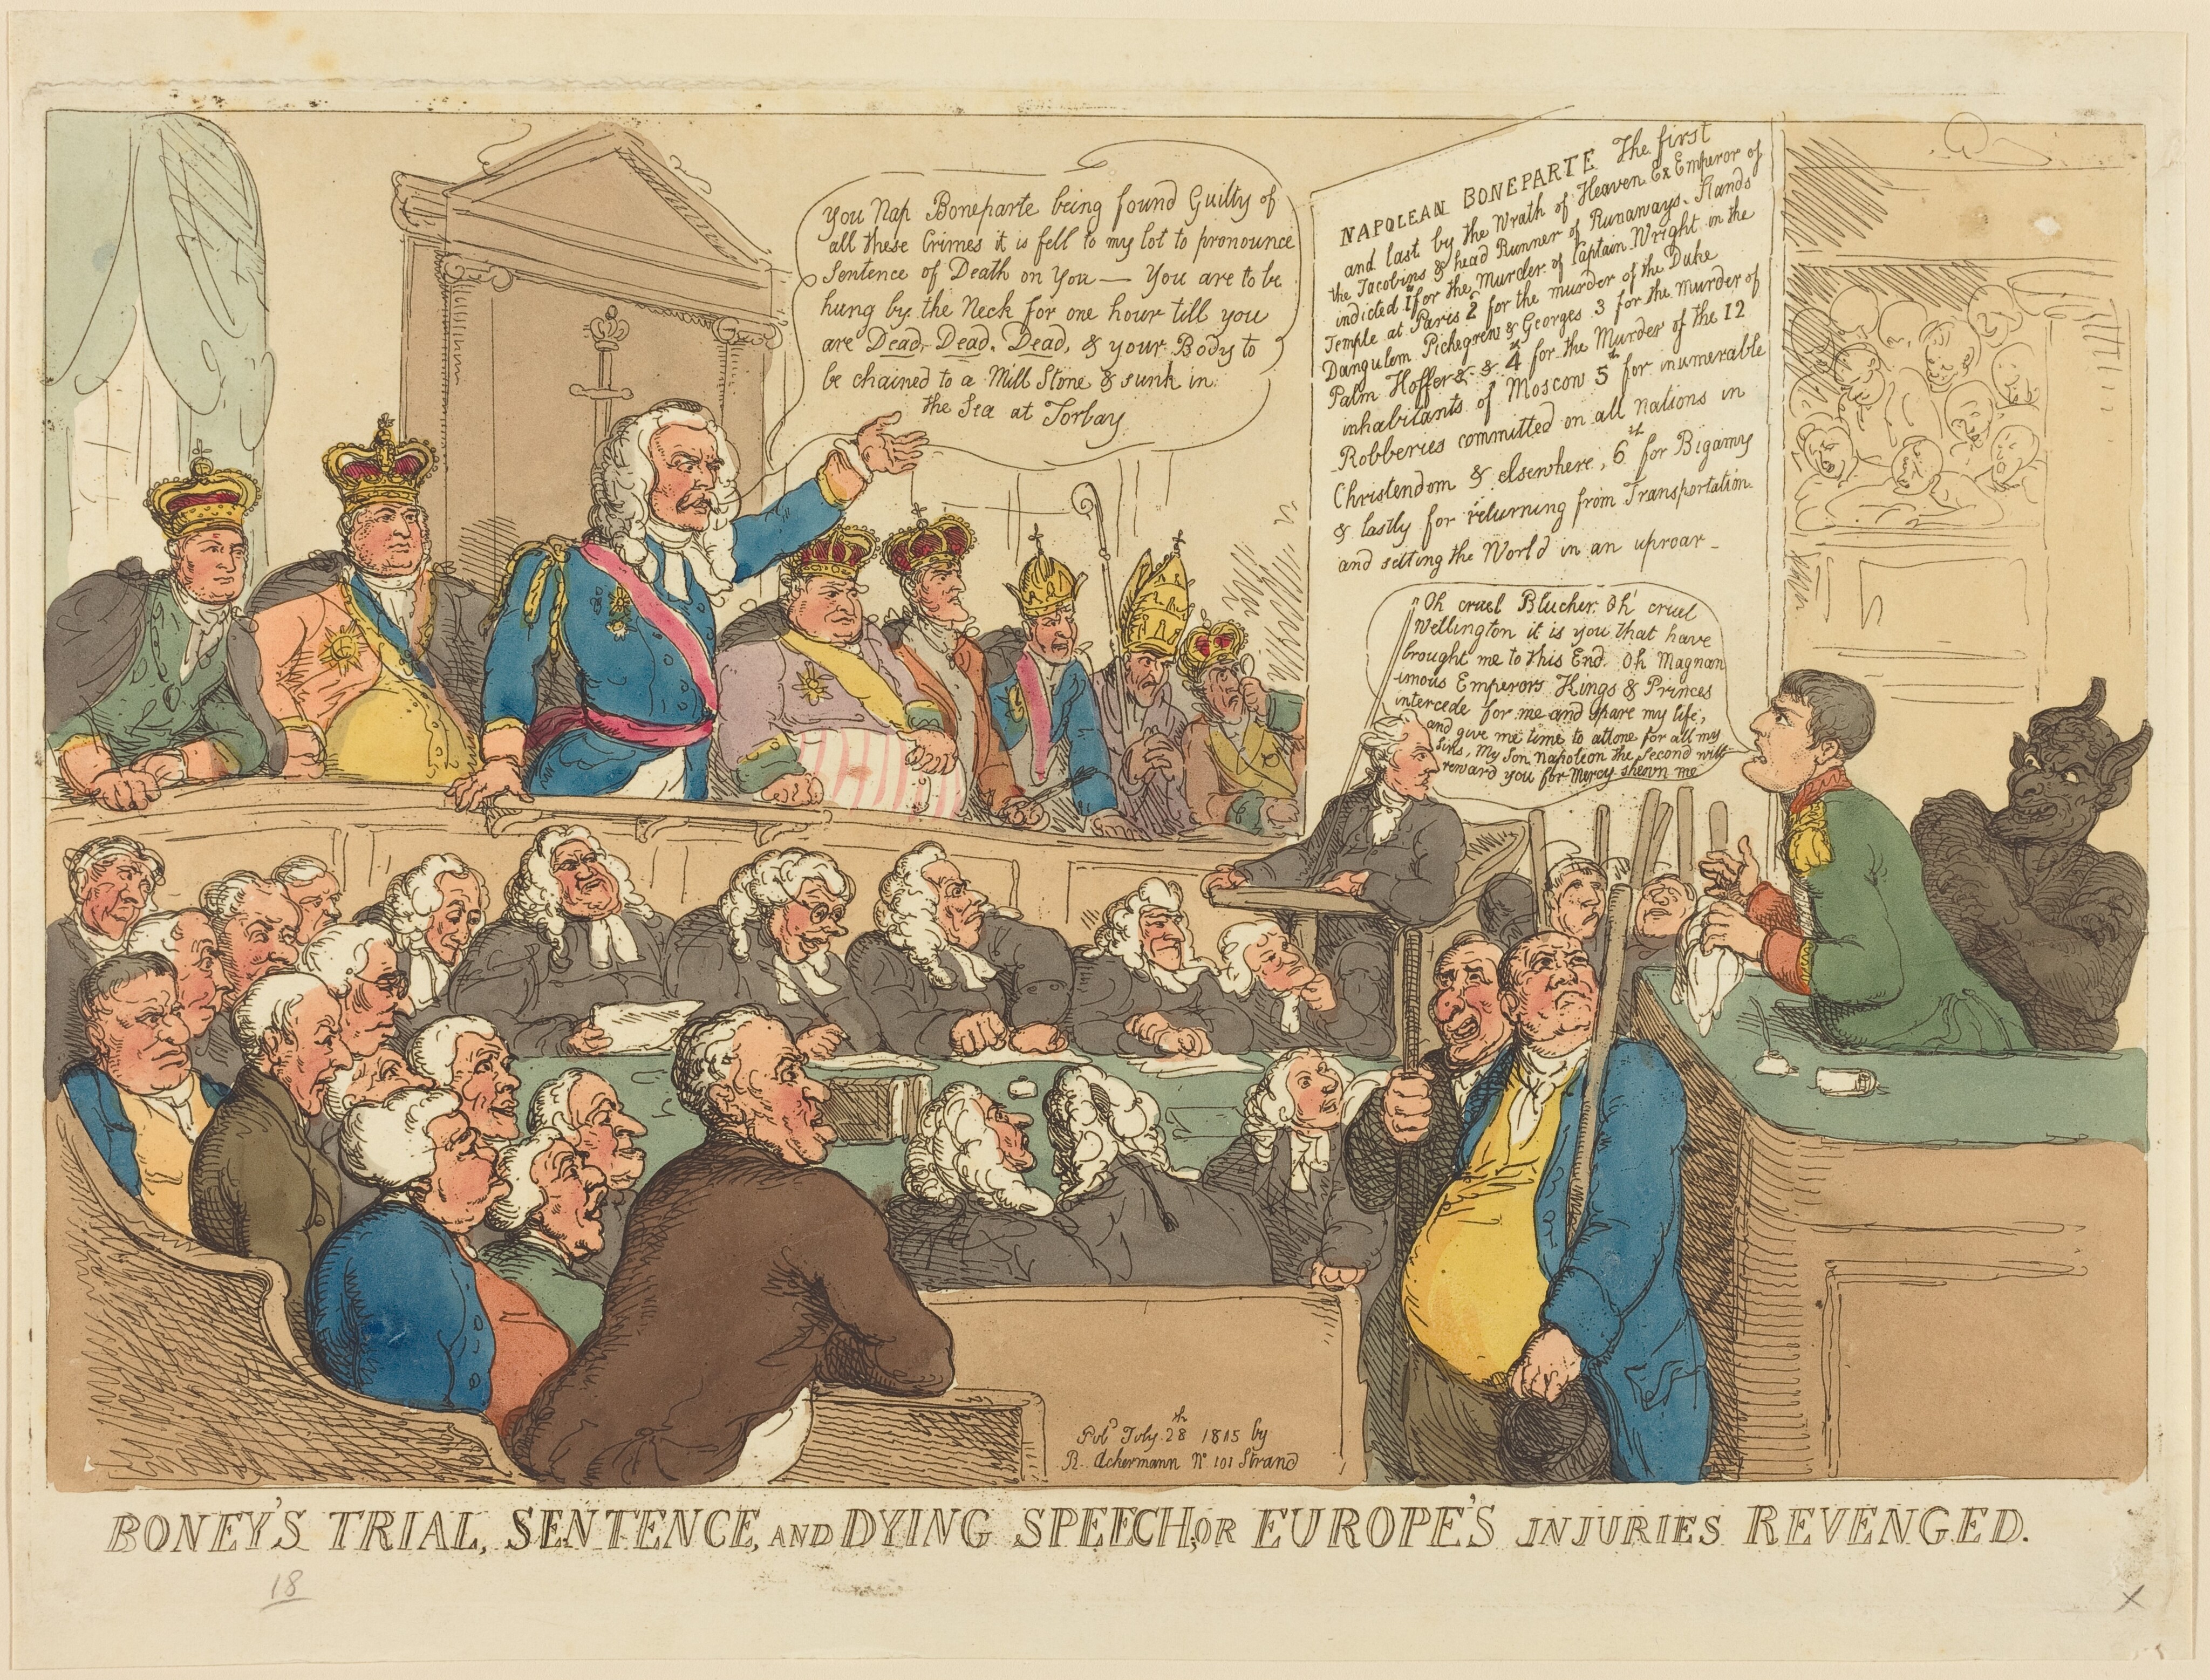 You Nap Boneparte being found Guilty of
all these Crimes it is fell to my lot to pronounce
Sentence of Death on You — You are to be
hung by the Neck for one hour till you
are Dead, Dead, Dead, & your Body to
be chained to a Mill Stone & sunk in
the Sea at Torbay
NAPOLEAN BONEPARTE The first
and last by the Wrath of Heaven Ex Emperor of
the Jacobins & head Runner of Runaways, Stands
indicted 1st for the Murder of Captain Wright in the
Temple at Paris 2 for the murder of the Duke
Dangulem Pichegrew & Georges 3 for the Murder of
Palm Hoffer & & 4 for the Murder of the 12
inhabitants of Moscow 5th for inumerable
Robberies committed on all Nations in
Christendom & elsewhere, 6th for Bigamy
& lastly for returning from Transportation
and setting the World in an uproar –
Oh cruel Blucher. Oh' cruel
Wellington it is you that have
brought me to this End. Oh Magnan
imous Emperors Kings & Princes
intercede for me and spare my life,
and give me time to attone for all my
Sins, My Son Napoleon the Second will
reward you for Mercy shewn me
Pubd July 28th 1815 by
R. Ackermann No 101 Strand
BONEY'S TRIAL, SENTENCE, AND DYING SPEECH, OR EUROPE'S INJURIES REVENGED.
18
X